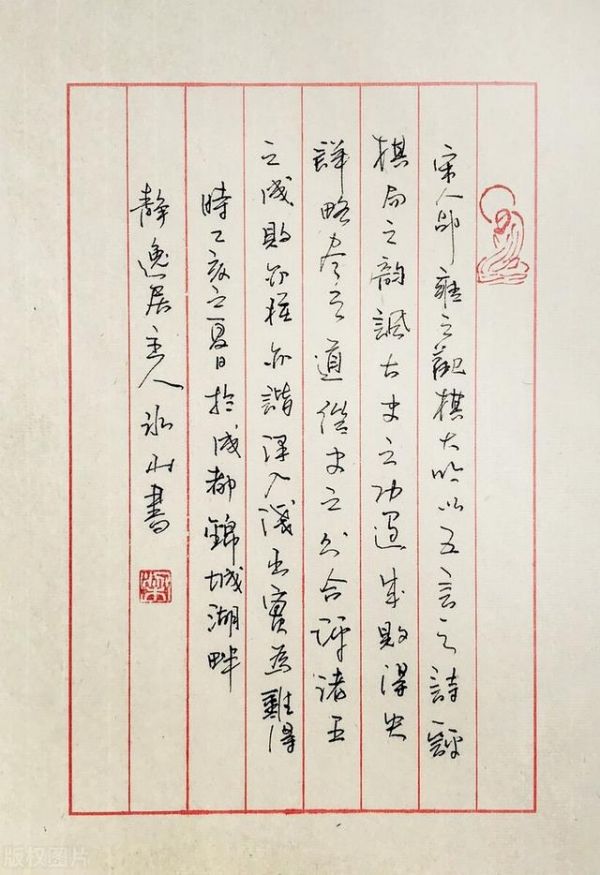 宋人邵雍之觀棋大吟以五言之詩評
棋局之韵古史之功過成敗得失
詳略道史之分合評诸王
之成敗亦莊亦諧深入淺出實為難得
時乙亥之夏日於成都錦城湖畔
靜逸居主人冰山書
版权图片